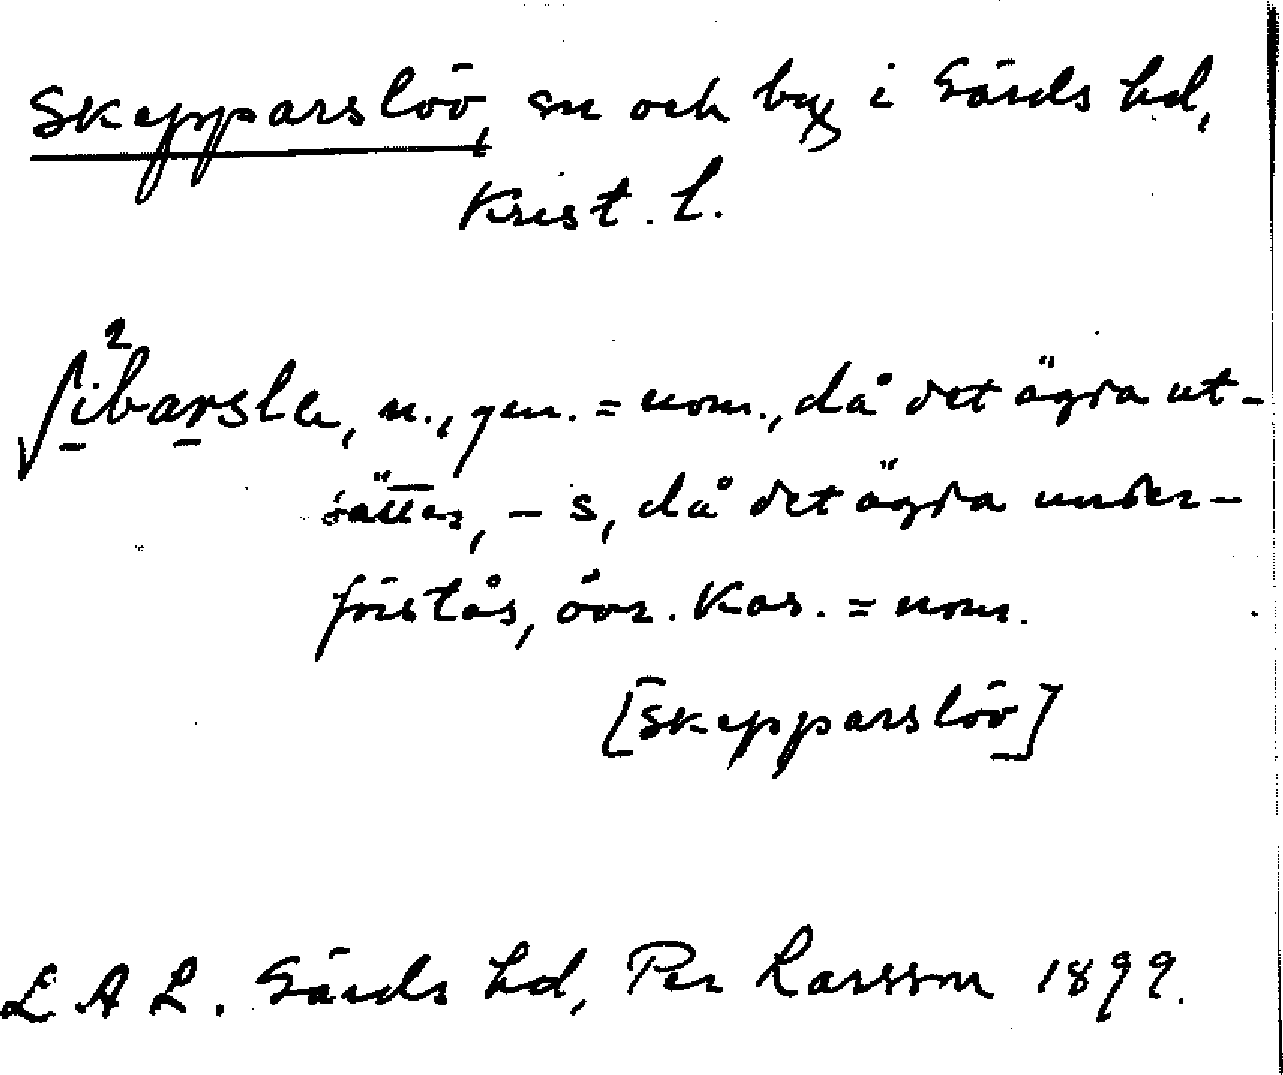 Skepparslöv, sn och by i Gärds hd,
Krist. l.
ʃi²barsle, n., gen. = nom., då det ägda ut-
sättes, – s, då det ägda under-
förstås, övr. kas. = nom.
[Skepparslöv]
L A L. Gärds hd, Per Larsson 1899.